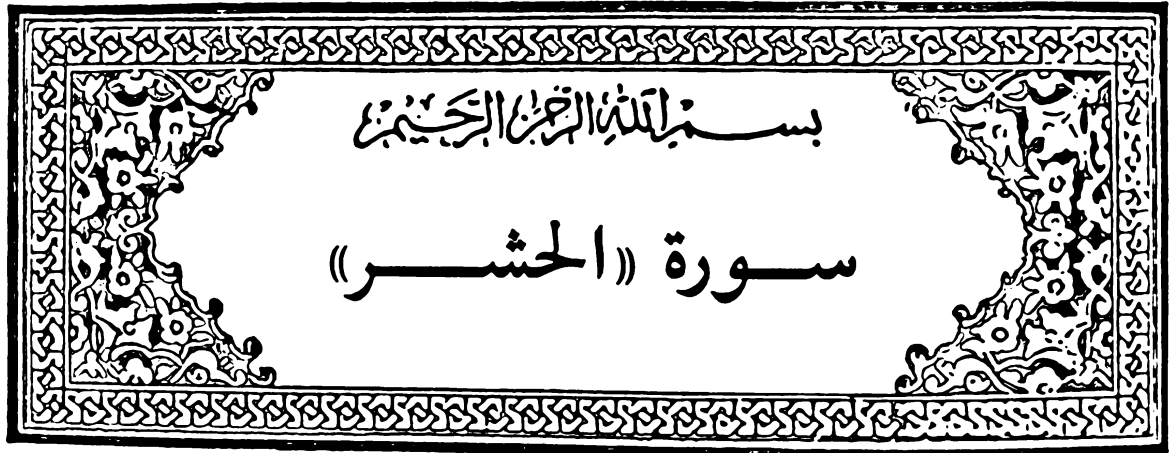 بسم الله الرحمن الرحيم
سورة «الحشر»